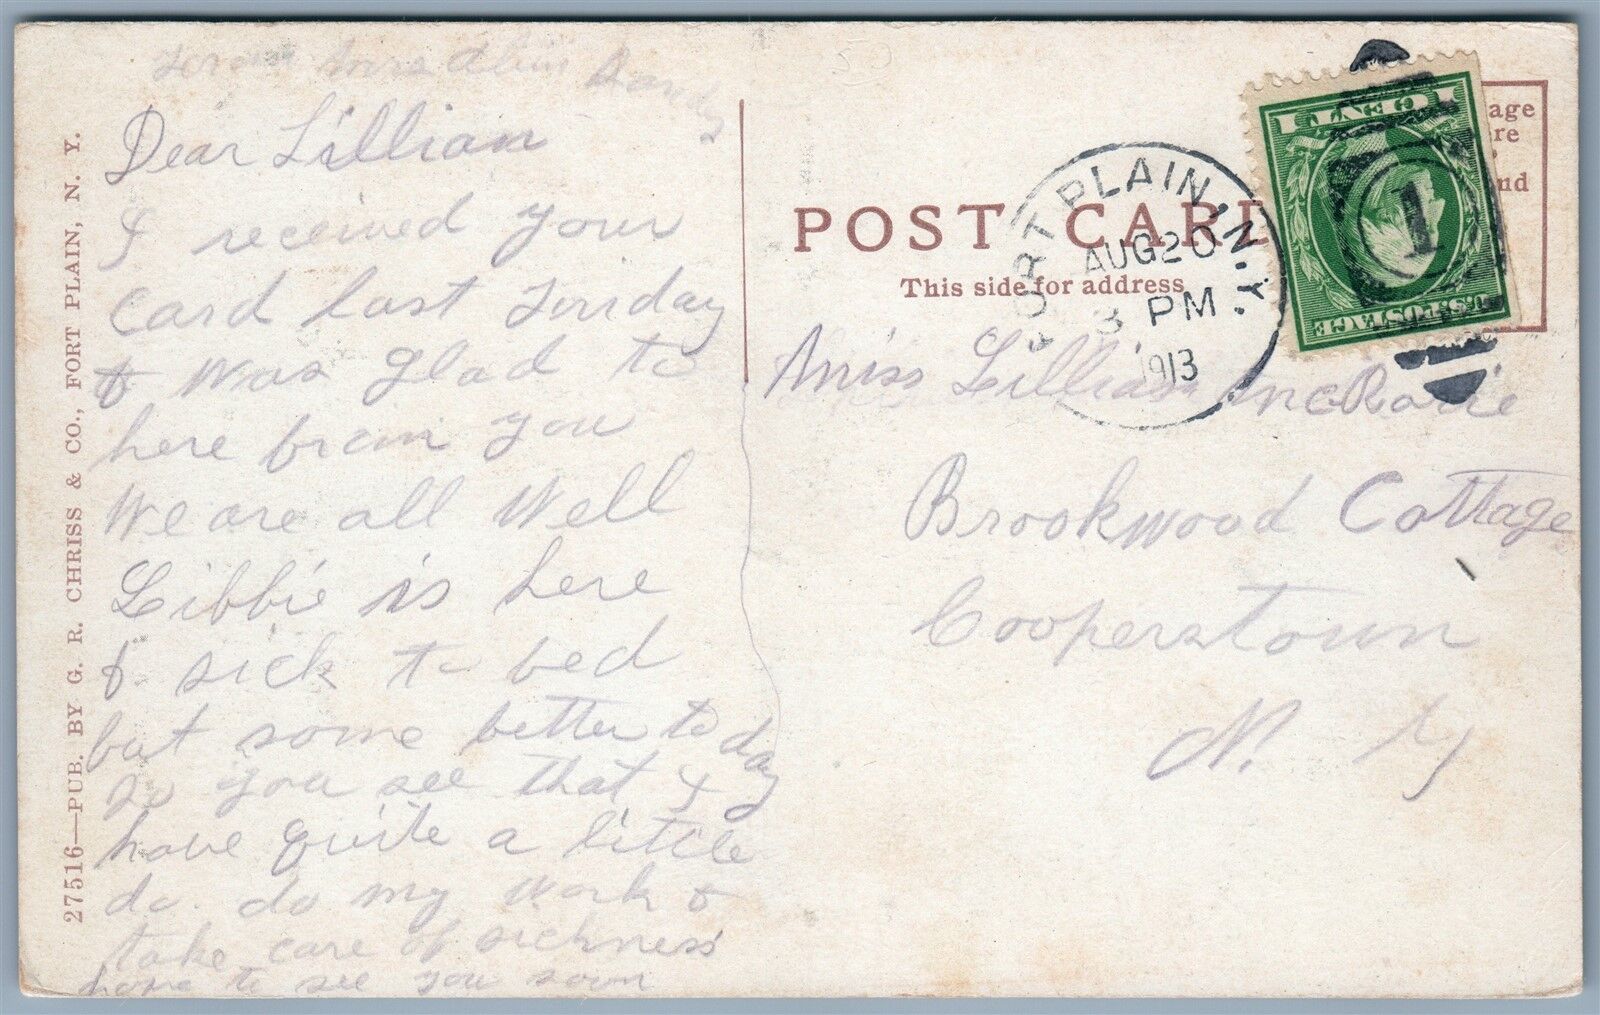 Dear Lillian
I received your
card last Sunday
& was glad to
here from you
We are all Well
Libbie is here
& sick to bed
but some better to day
So you see that I
have quite a little
do. do my work &
take care of sickness
hope to see you soon
27516—PUB. BY G. R. CHRISS & CO., FORT PLAIN, N. Y.
POST CARD
This side for address
FORT PLAIN, N.Y.
AUG 20
3 PM
1913
1 CENT 1
U.S. POSTAGE
1
age
re
nd
Miss Lillian
Brookwood Cottage
Cooperstown
N. Y
50